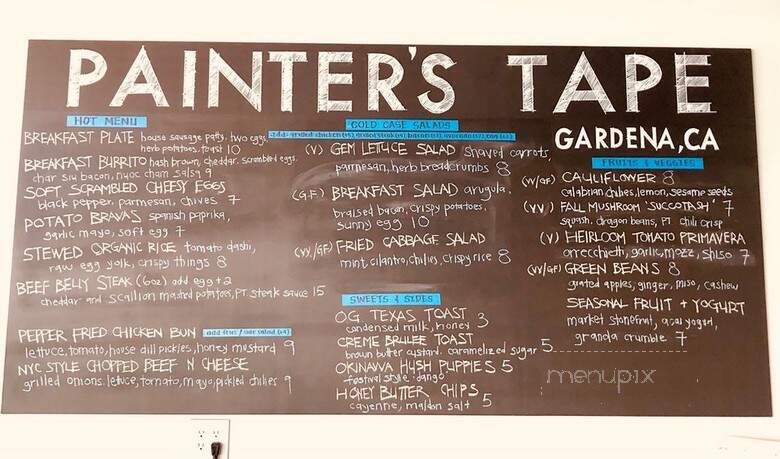 PAINTER'S TAPE
GARDENA, CA
HOT MENU
BREAKFAST PLATE house sausage patty, two eggs
herb potatoes, toast 10
BREAKFAST BURRITO hash brown, cheddar, scrambled eggs,
char siu bacon, nuoc cham salsa 9
SOFT SCRAMBLED CHEESY EGGS
black pepper, parmesan, chives 7
POTATO BRAVAS spanish paprika,
garlic mayo, soft egg 7
STEWED ORGANIC RICE tomato dashi,
raw egg yolk, crispy things 8
BEEF BELLY STEAK (6oz) add egg +2
cheddar and scallion mashed potatoes, PT. steak sauce 15
PEPPER FRIED CHICKEN BUN add fries / side salad (+4)
lettuce, tomato, house dill pickles, honey mustard 9
NYC STYLE CHOPPED BEEF N CHEESE
grilled onions, lettuce, tomato, mayo, pickled chilies 9
COLD CASE SALADS
add: grilled chicken
(V) GEM LETTUCE SALAD shaved carrots,
parmesan, herb breadcrumbs 8
(G.F) BREAKFAST SALAD arugula,
braised bacon, crispy potatoes,
sunny egg 10
(VV./GF) FRIED CABBAGE SALAD
mint, cilantro, chilies, crispy rice 8
SWEETS & SIDES
OG TEXAS TOAST
condensed milk, honey 3
CREME BRULEE TOAST
brown butter custard, caramelized sugar 5
OKINAWA HUSH PUPPIES 5
festival style dango
HONEY BUTTER CHIPS 5
cayenne, maldon salt
FRUITS & VEGGIES
(VV/GF) CAULIFLOWER 8
calabrian chilies, lemon, sesame seeds
(V.V) FALL MUSHROOM 'SUCCOTASH' 7
squash, dragon beans, PT chili crisp
(V) HEIRLOOM TOMATO PRIMAVERA
orrecchietti, garlic, mozz, shiso 7
(VV/GF) GREEN BEANS 8
grated apples, ginger, miso, cashew
SEASONAL FRUIT + YOGURT
market stonefruit, acai yogurt,
granola crumble 7
menupix